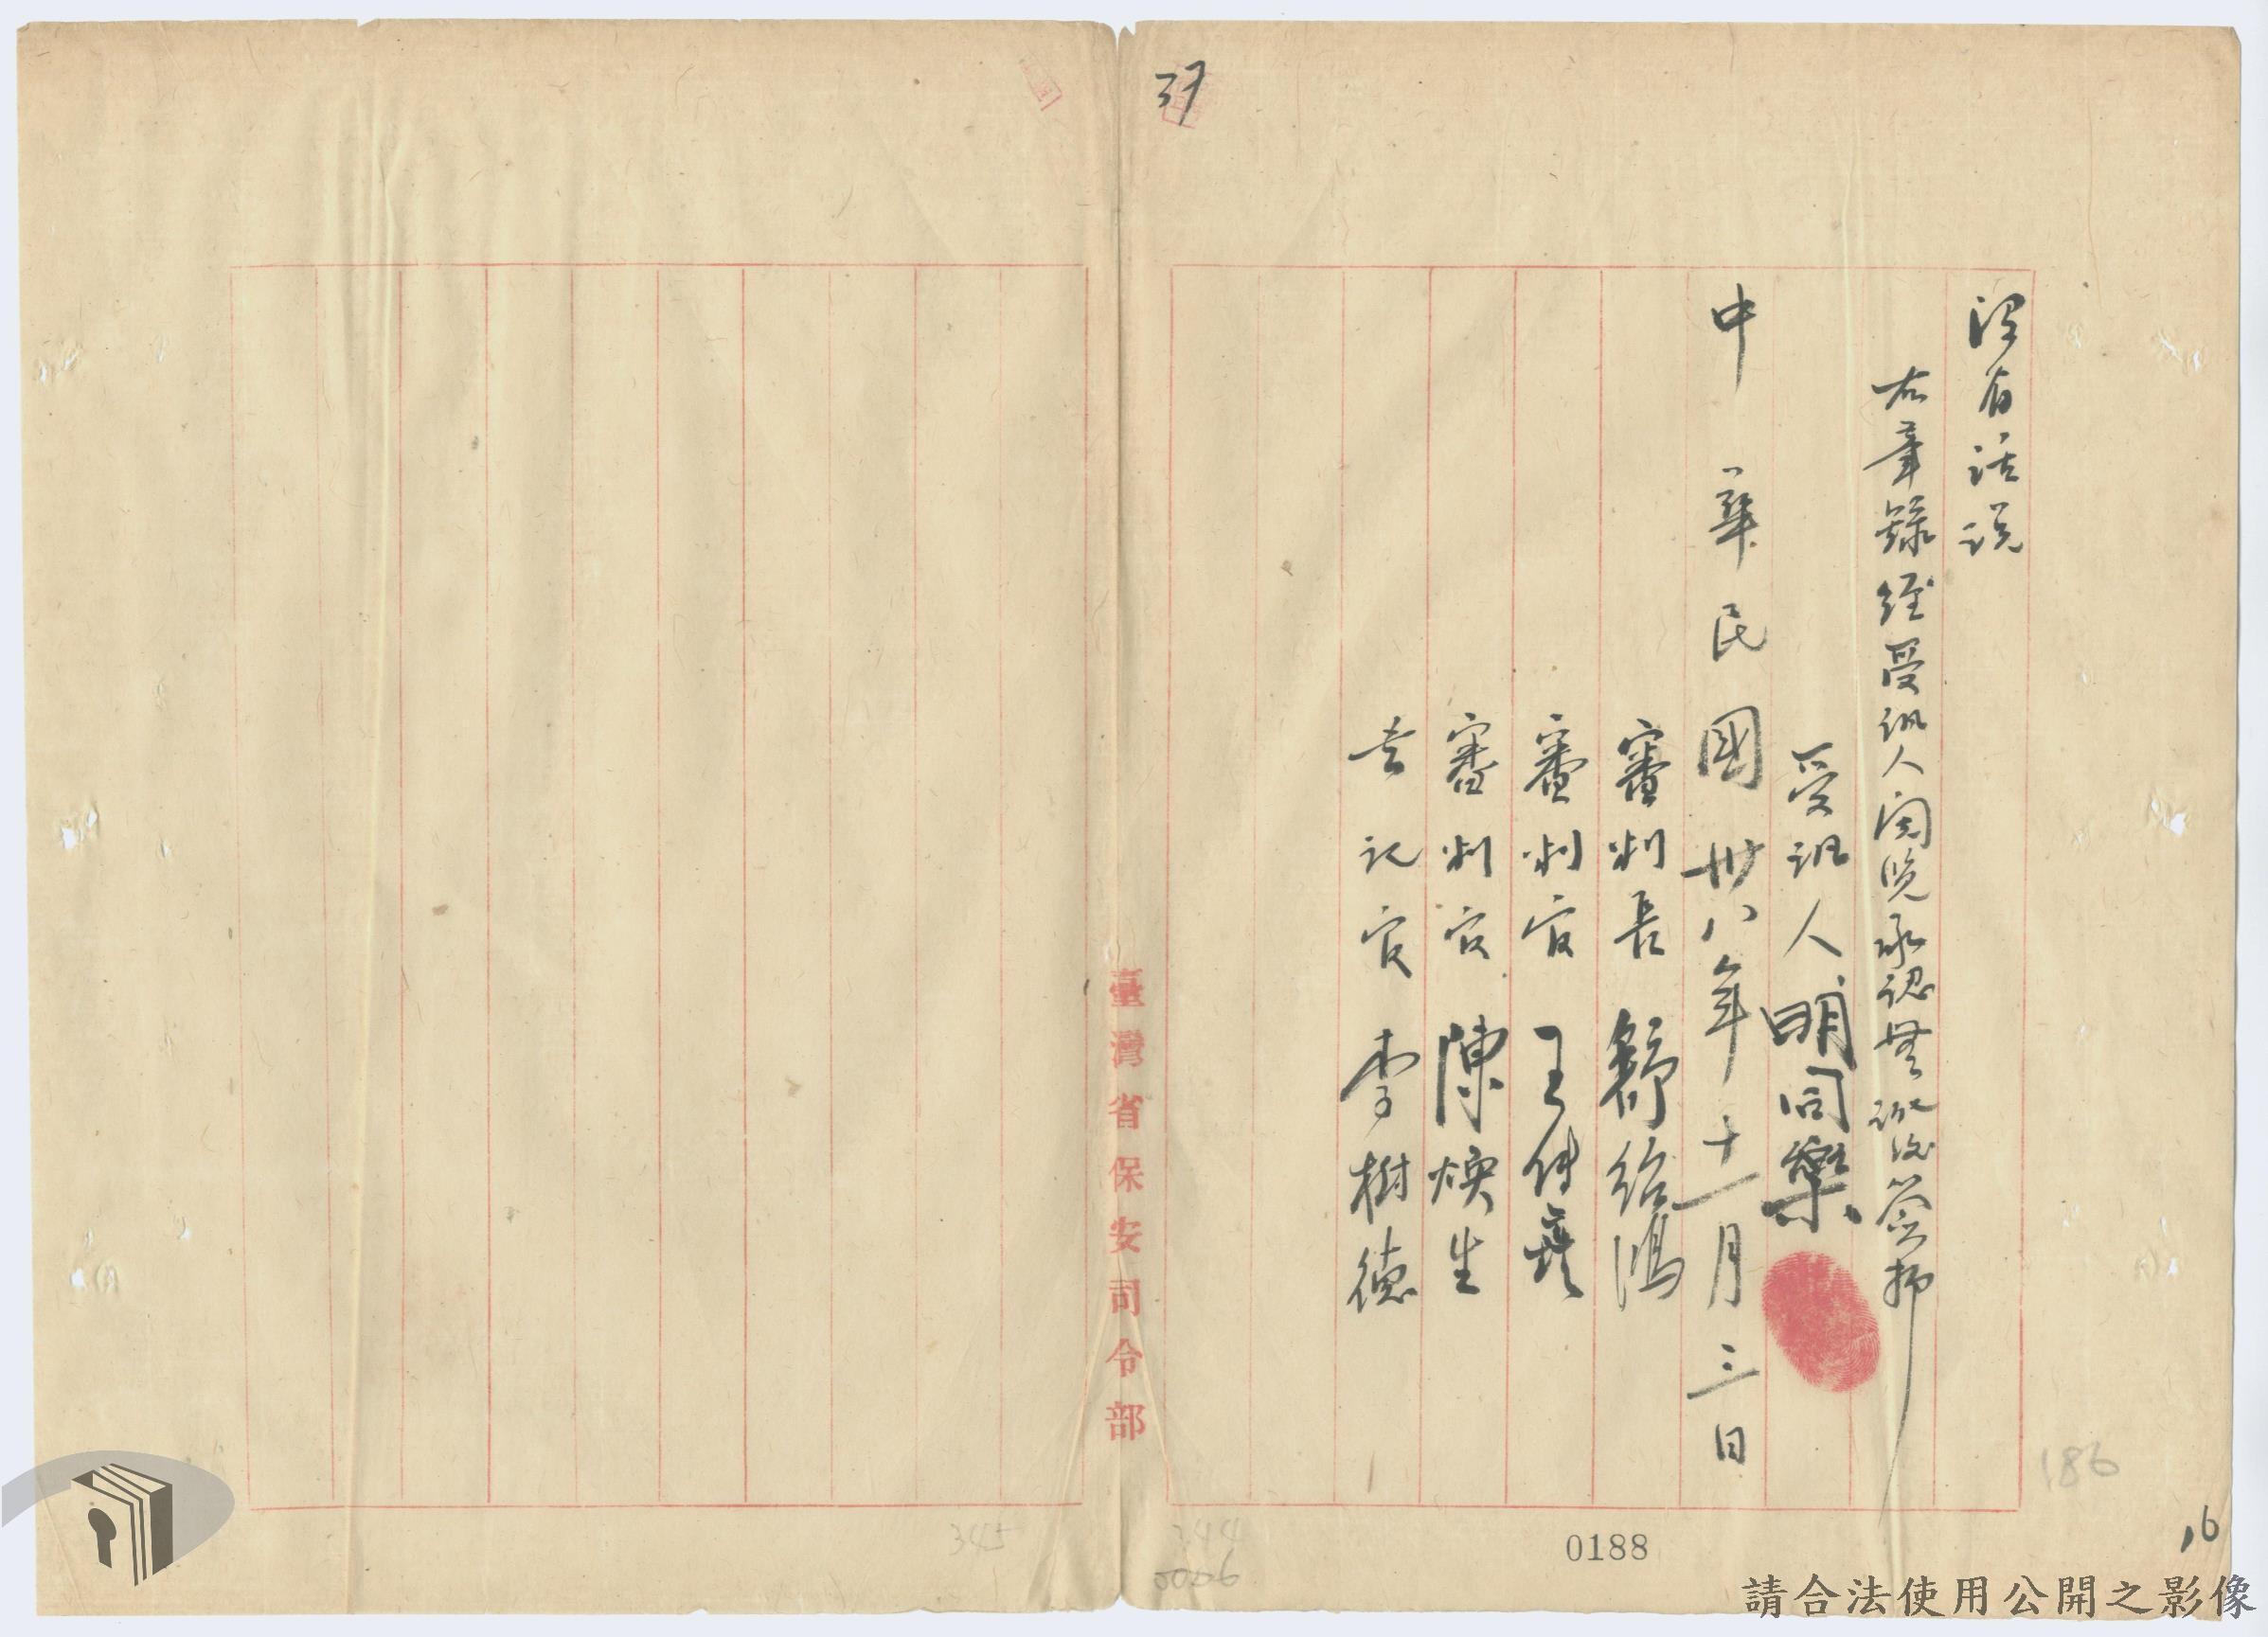 沒有話說
右筆錄經受訊人閱覽承認無訛後簽押
受訊人 明同樂
中華民國卅八年十一月三日
審判長 舒紹鴻
審判官 王傳彝
審判官 陳煥生
書記官 李樹德
臺灣省保安司令部
37
186
16
0188
344
345
請合法使用公開之影像